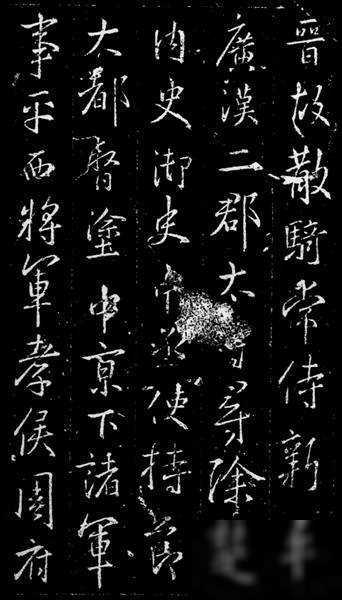 晉故散騎常侍新
廣漢二郡太尋除
內史御史中丞使持節
大都督塗中京下諸軍
事平西將軍孝侯周府